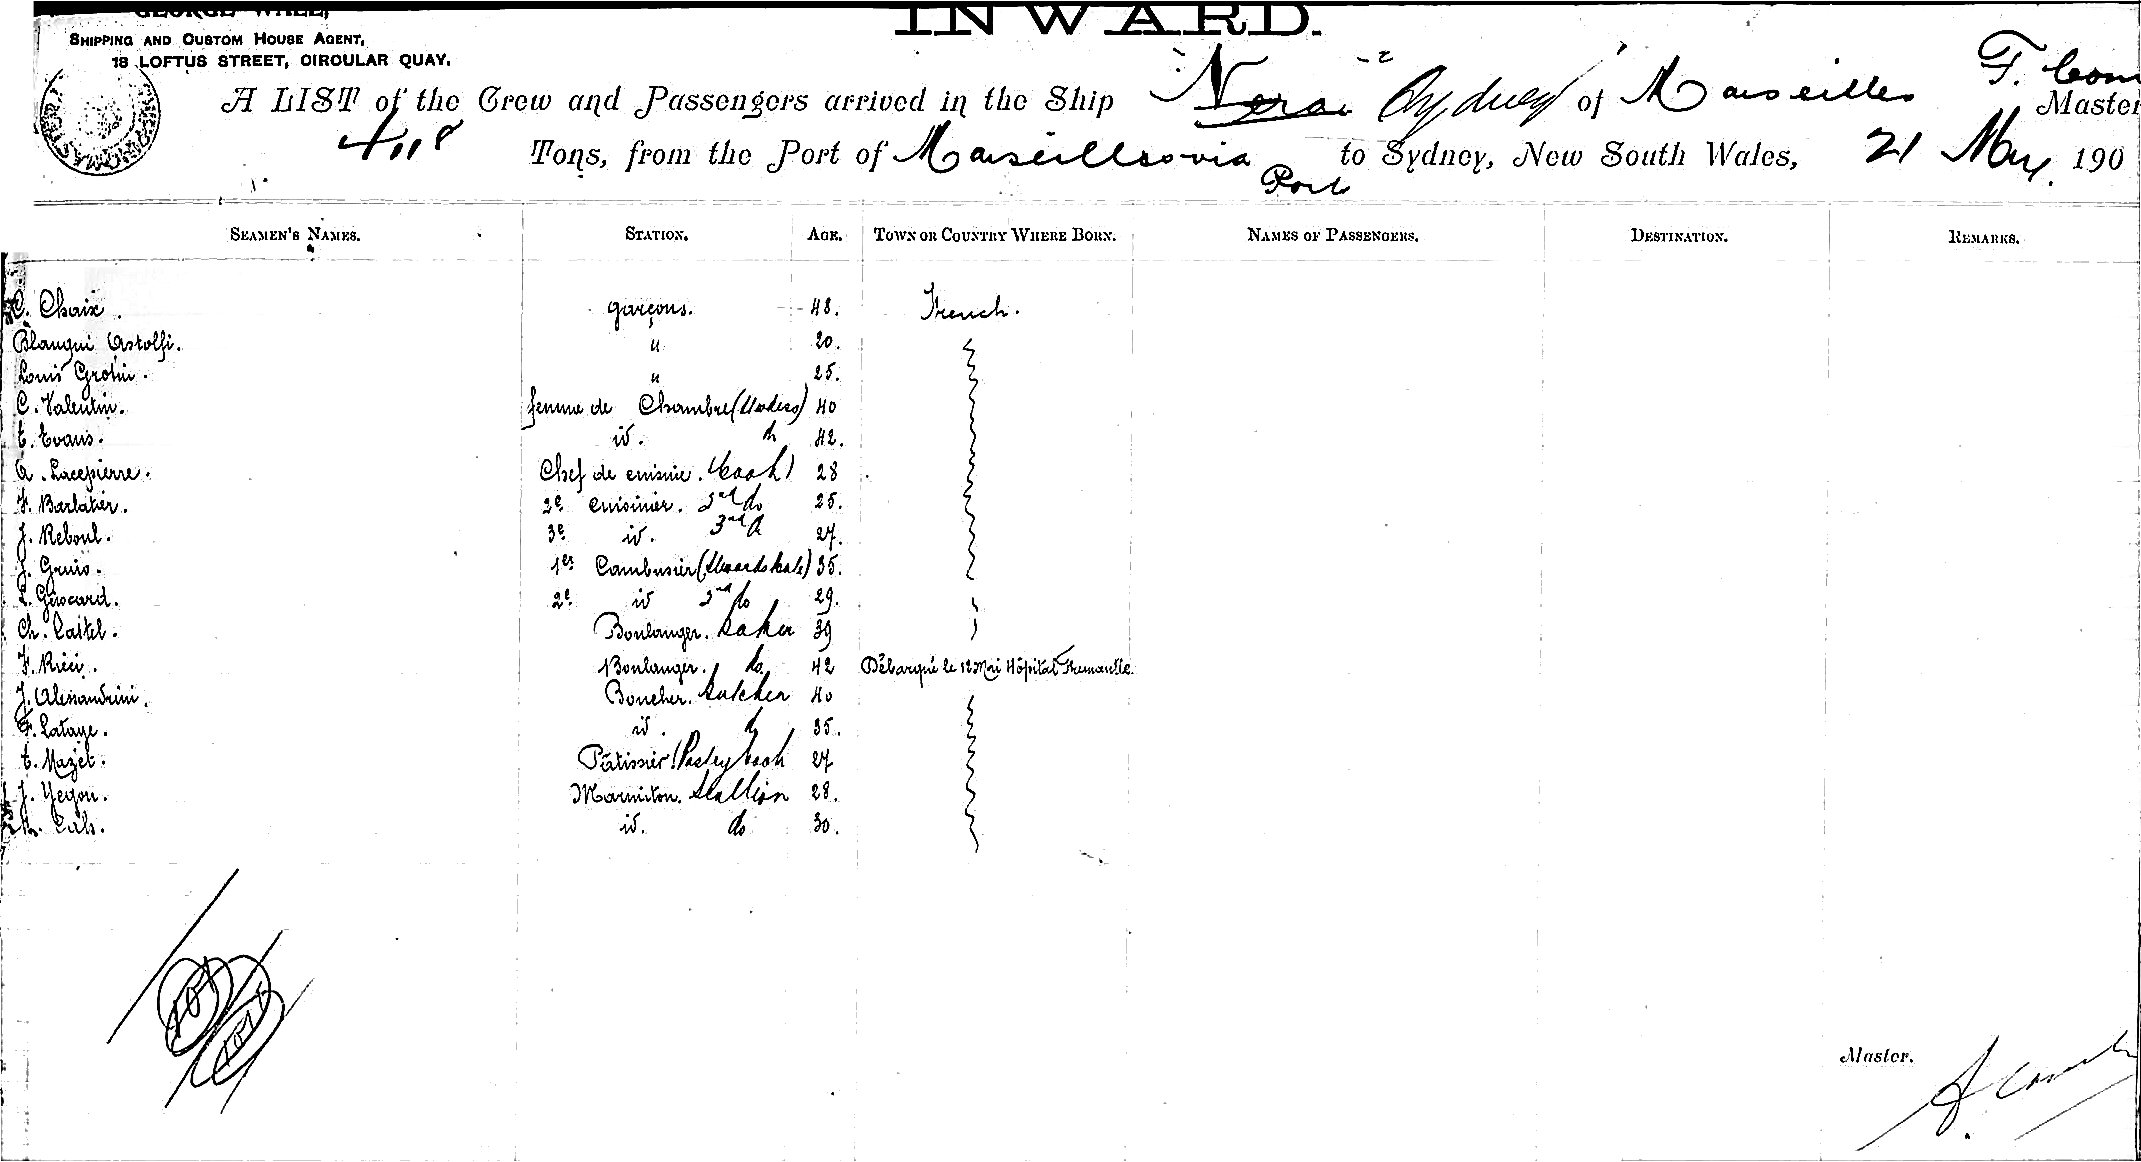 GEORGE WALL,
SHIPPING AND CUSTOM HOUSE AGENT,
18 LOFTUS STREET, CIRCULAR QUAY.
INWARD.
A LIST of the Crew and Passengers arrived in the Ship "Nera" "Sydney" of Marseilles F. Com Master
4118 Tons, from the Port of Marseilles via Ports to Sydney, New South Wales, 21 May. 190
SEAMEN'S NAMES. STATION. AGE. TOWN OR COUNTRY WHERE BORN. NAMES OF PASSENGERS. DESTINATION. REMARKS.
C. Chaix. garçons. 48. French.
Blangui Astolfi. " 20.
Louis Grotin. " 25.
C. Valentin. femme de Chambre (Stwdess) 40
E. Evans. id. do 42.
A. Lacepierre. Chef de cuisine. (Cook) 28
F. Barlatier. 2e cuisinier. 2nd do 25.
J. Reboul. 3e id. 3rd do 27.
J. Gruis. 1er Cambusier 35.
L. Giscard. 2e id 2nd do 29.
Ch. Castel. Boulanger. Baker 39
F. Ricci. Boulanger. do. 42 Débarqué le 12 Mai Hôpital Fremantle.
J. Alessandrini. Boucher. Butcher 40
F. Lataye. id. do 35.
E. Mazet. Pâtissier (Pastry Cook 27
J. Yegou. Marmiton. Scullion 28.
id. do 30.
Master.